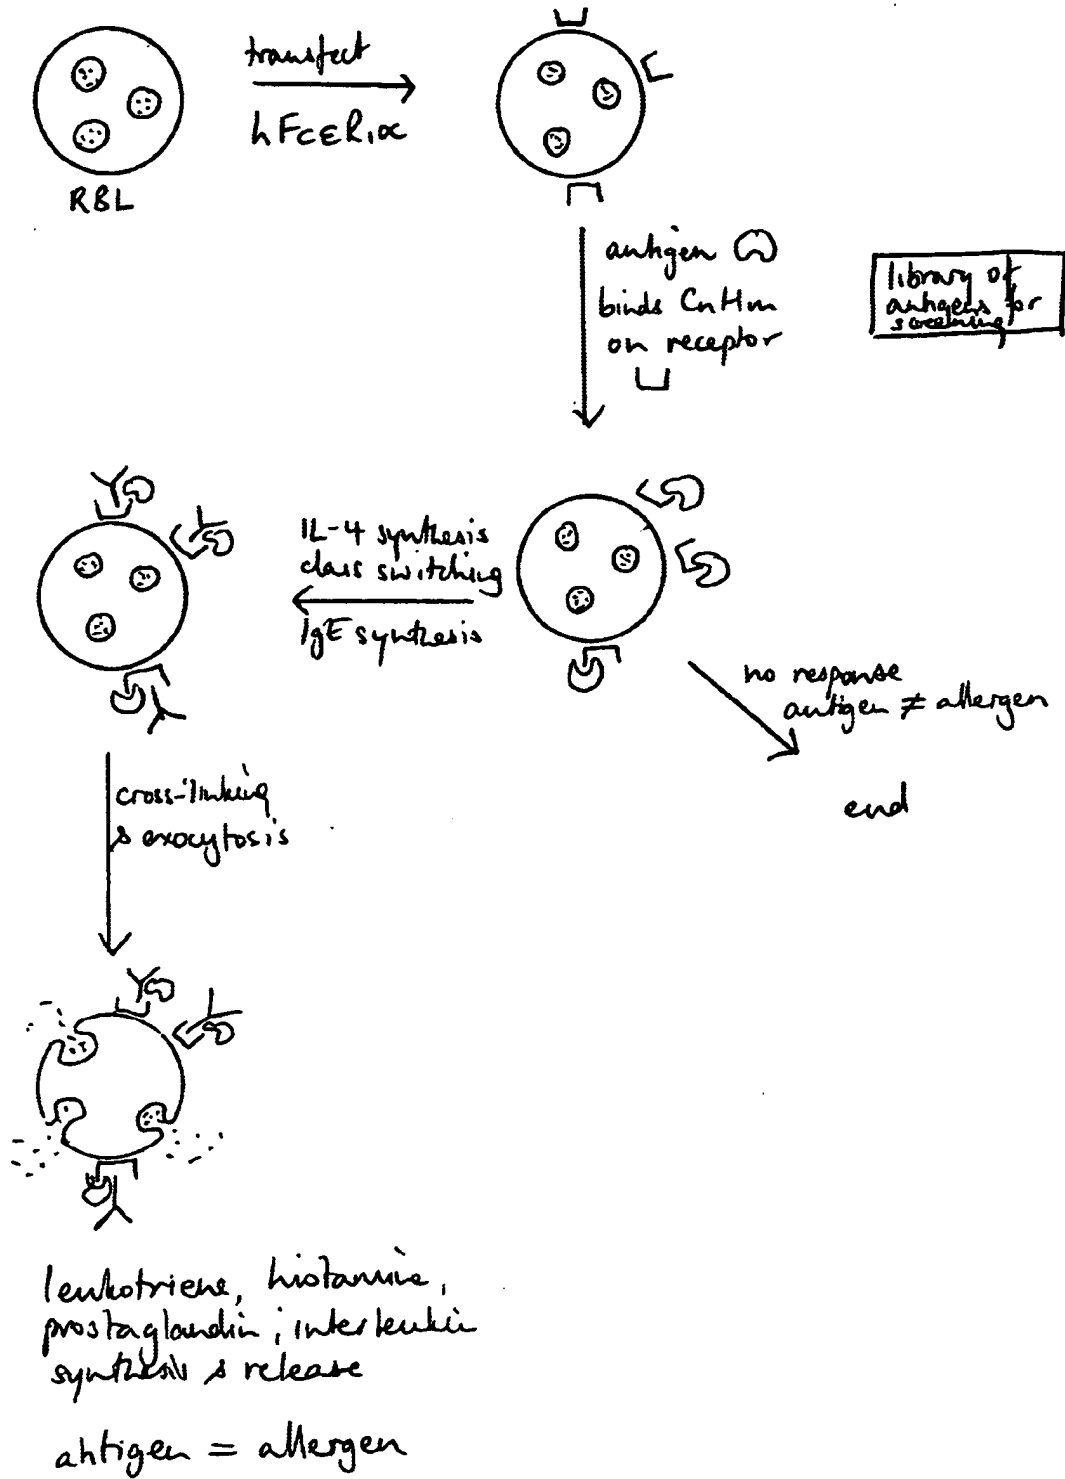 transfect
hFcεR1α
RBL
antigen
binds CnHm
on receptor
library of
antigens for
screening
IL-4 synthesis
class switching
IgE synthesis
no response
antigen ≠ allergen
end
cross-linking
& exocytosis
leukotriene, histamine,
prostaglandin; interleukin
synthesis & release
antigen = allergen